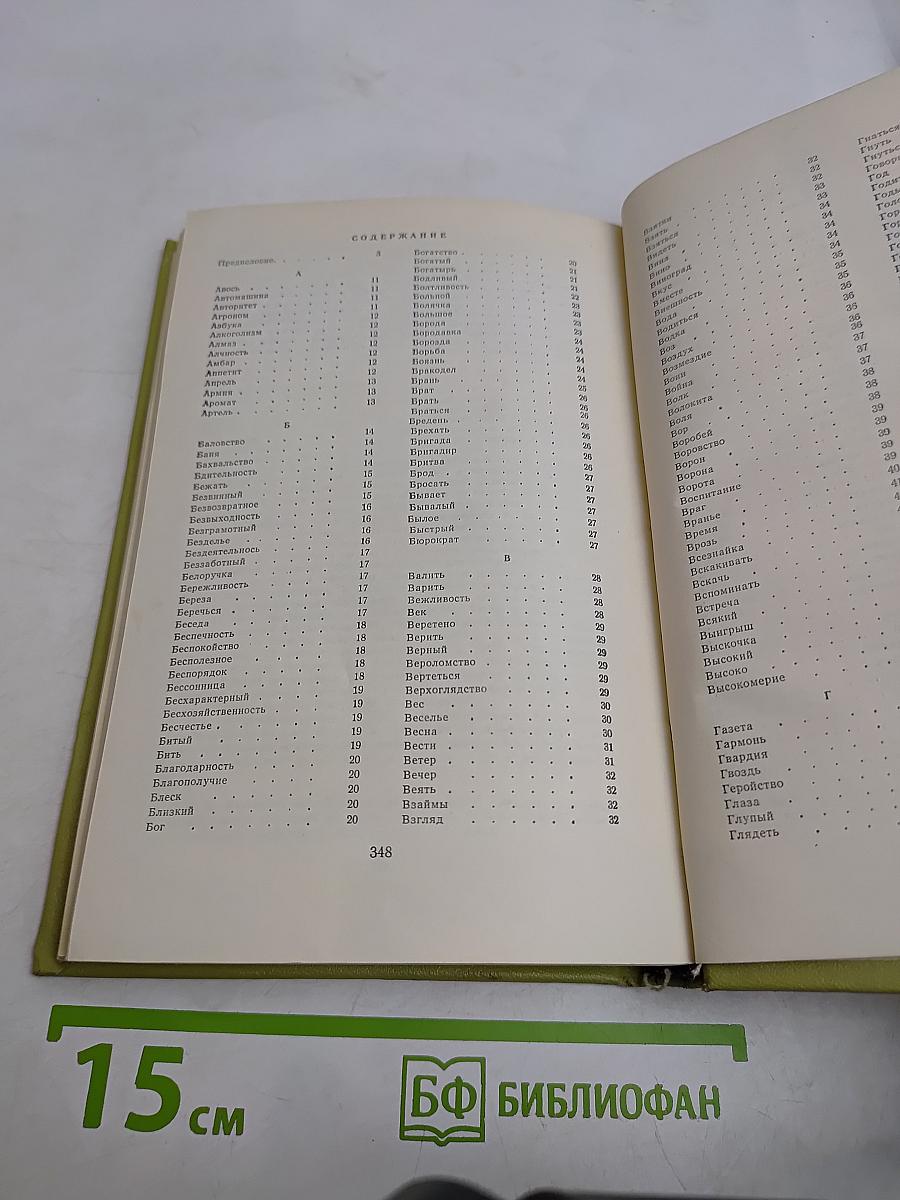 СОДЕРЖАНИЕ
Предисловие. 3
А
Авось 11
Автомашина 11
Авторитет 11
Агроном 12
Азбука 12
Алкоголизм 12
Алмаз 12
Алчность 12
Амбар 12
Аппетит 12
Апрель 13
Армия 13
Аромат 13
Артель
Б
Баловство 14
Баня 14
Бахвальство 14
Бдительность 14
Бежать 15
Безвинный 15
Безвозвратное 15
Безвыходность 16
Безграмотный 16
Безделье 16
Бездеятельнось 16
Беззаботный 17
Белоручка 17
Бережливость 17
Береза 17
Беречься 17
Беседа 17
Беспечность 18
Беспокойство 18
Бесполезное 18
Беспорядок 18
Бессонница 18
Бесхарактерный 19
Бесхозяйственность 19
Бесчестье 19
Битый 19
Бить 19
Благодарность 20
Благополучие 20
Блеск 20
Близкий 20
Бог 20
Богатство
Богатый 20
Богатырь 21
Бодливый 21
Болтливость 21
Больной 22
Болячка 23
Большое 23
Борода 23
Бородавка 23
Борозда 24
Борьба 24
Боязнь 24
Бракодел 24
Брань 24
Брат 25
Брать 26
Браться 26
Бредень 26
Брехать 26
Бригада 26
Бригадир 26
Бритва 26
Брод 26
Бросать 27
Бывает 27
Бывалый 27
Былое 27
Быстрый 27
Бюрократ 27
В
Валить 28
Варить 28
Вежливость 28
Век 28
Веретено 29
Верить 29
Верный 29
Вероломство 29
Вертеться 29
Верхоглядство 29
Вес 30
Веселье 30
Весна 30
Вести 31
Ветер 31
Вечер 32
Веять 32
Взаймы 32
Взгляд 32
348
Взятки 32
Взять 32
Взяться 32
Видеть 33
Вина 33
Вино 34
Виноград 34
Вкус 34
Вместе 34
Внешность 35
Вода 35
Водиться 35
Водка 36
Воз 36
Воздух 36
Возмездие 36
Вони 36
Война 37
Волк 37
Волокита 37
Воля 38
Вор 38
Воробей 38
Воровство 39
Ворон 39
Ворона 39
Ворота 39
Воспитание 39
Враг 40
Вранье
Время
Врозь
Всезнайка
Вскакивать
Вскачь
Вспоминать
Встреча
Всякий
Выигрыш
Выскочка
Высокий
Высоко
Высокомерие
Г
Газета
Гармонь
Гвардия
Гвоздь
Геройство
Глаза
Глупый
Глядеть
Гнаться
Гнуть
Год
15 см
БФ БИБЛИОФАН